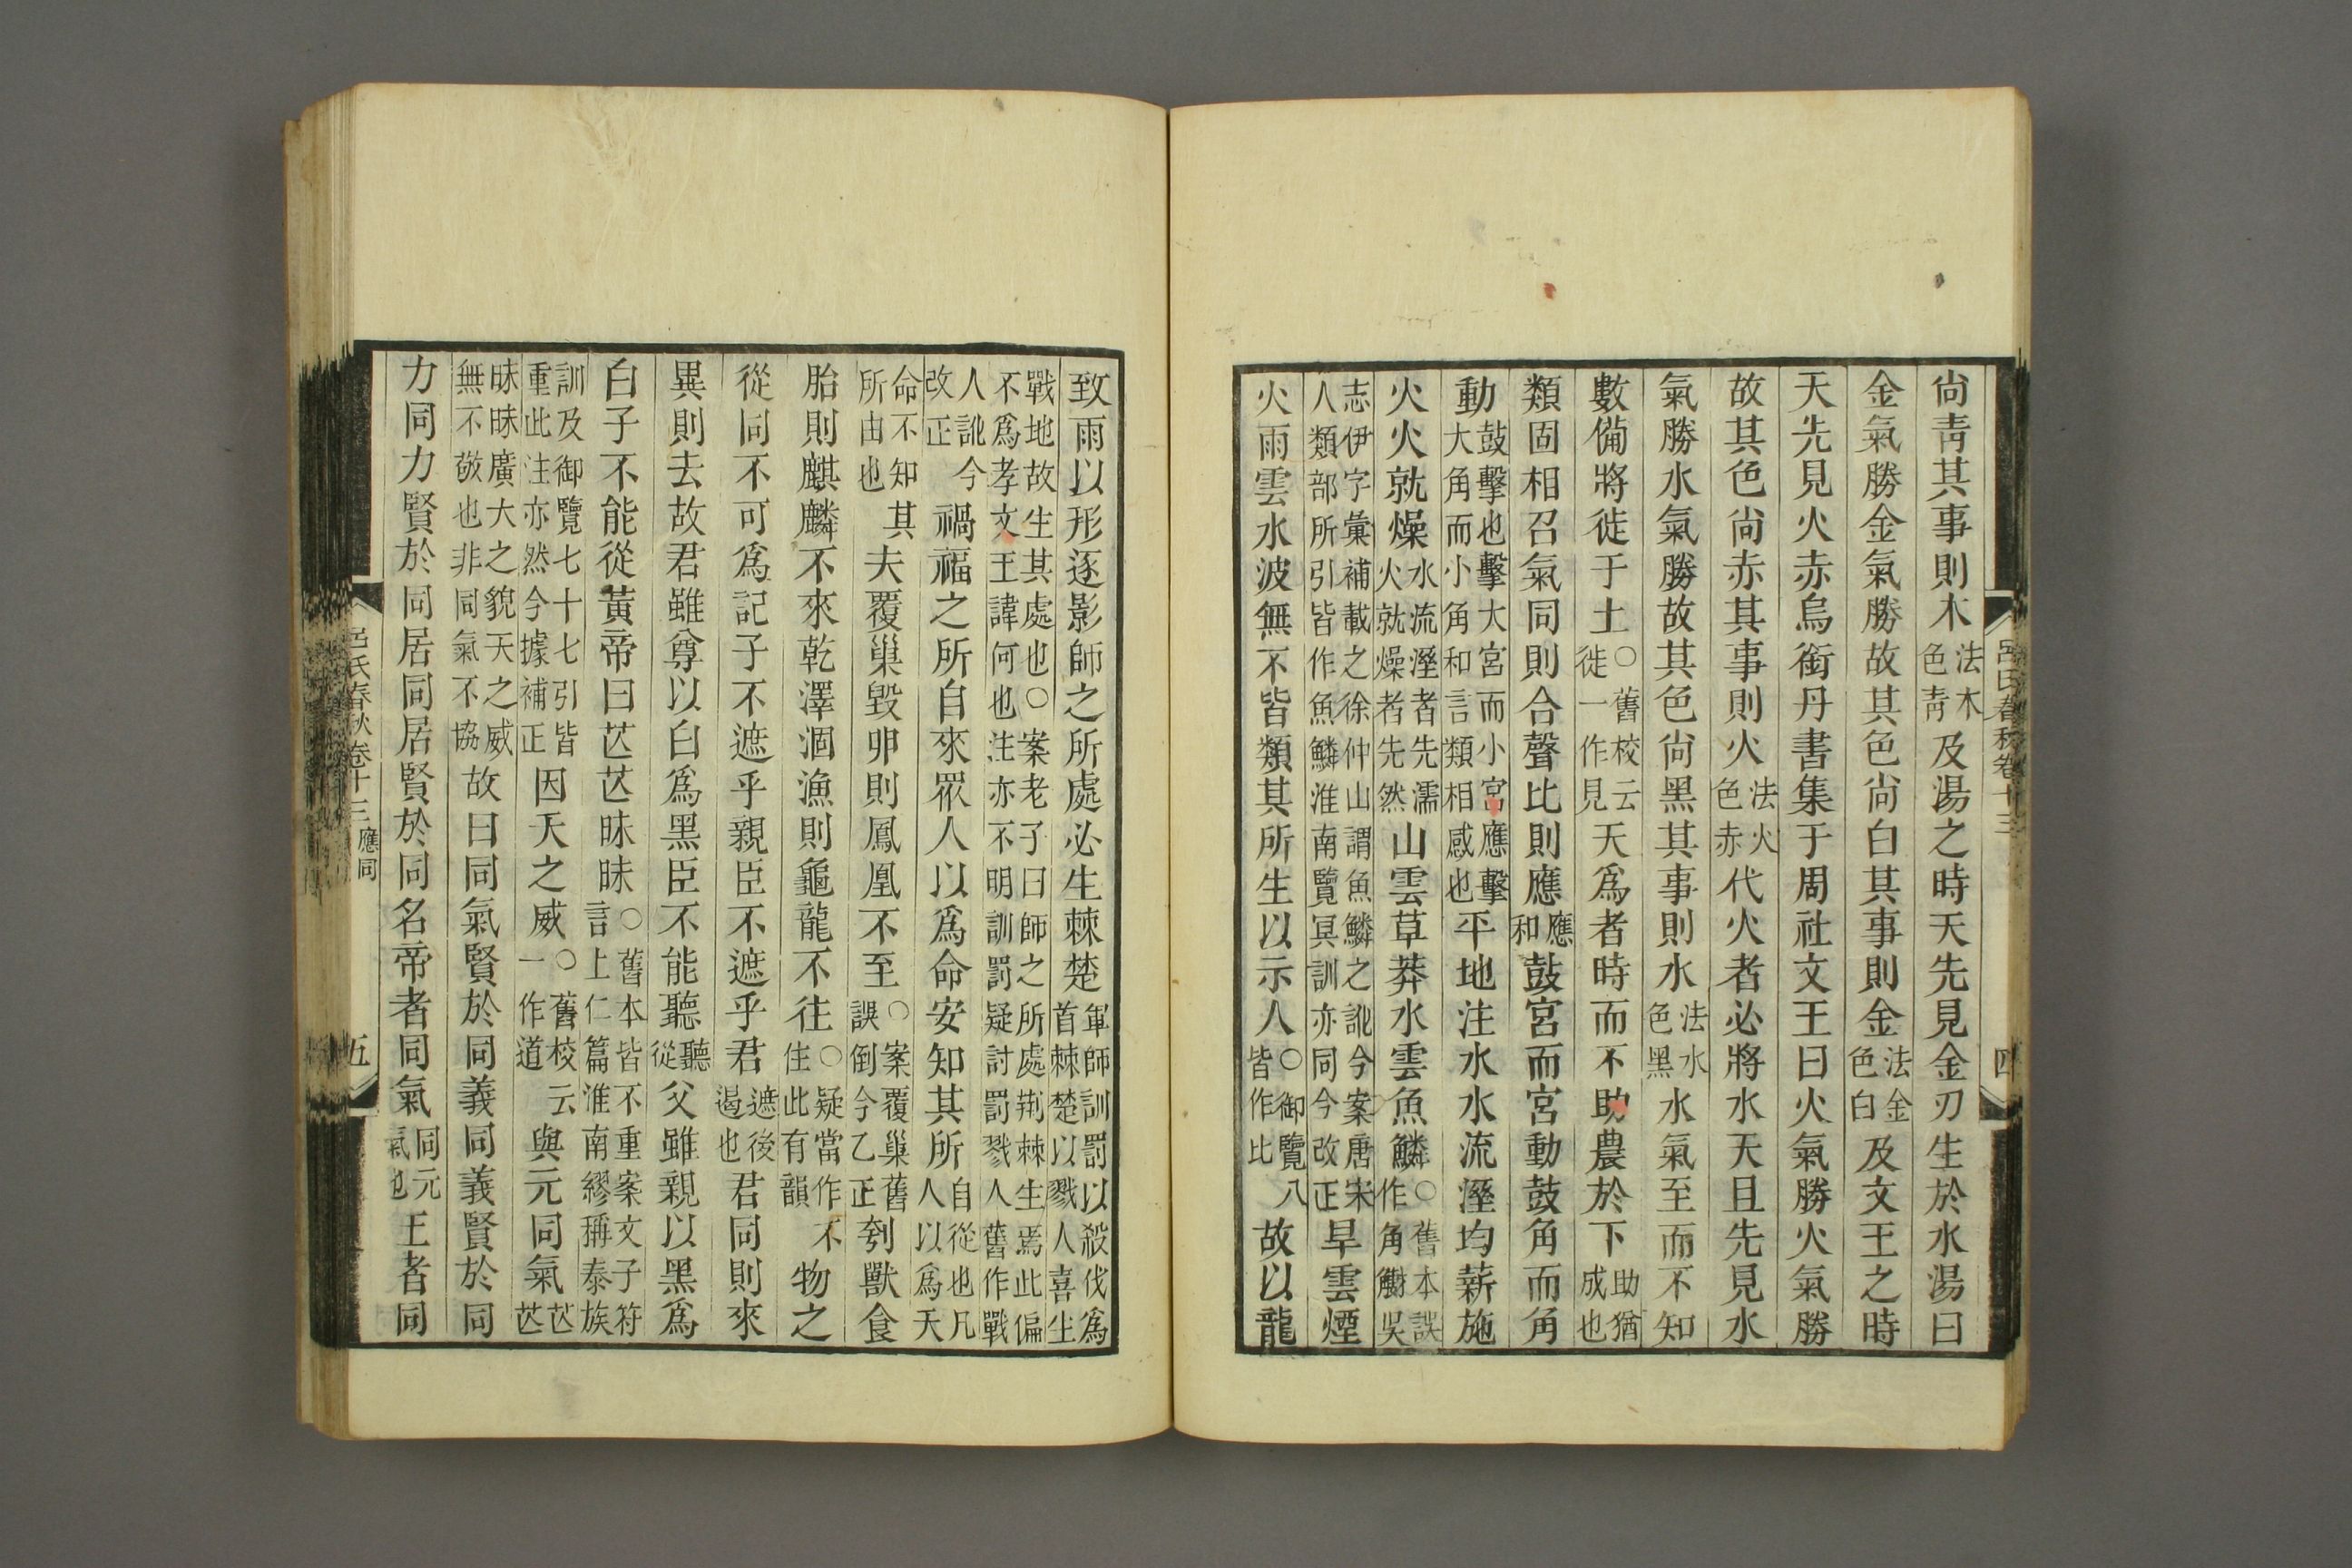 尙青其事則木法木色青及湯之時天先見金刃生於水湯曰
金氣勝金氣勝故其色尙白其事則金法金色白及文王之時
天先見火赤烏銜丹書集于周社文王曰火氣勝火氣勝
故其色尙赤其事則火法火色赤代火者必將水天且先見水
氣勝水氣勝故其色尙黑其事則水法水色黑水氣至而不知
數備將徙于土○舊校云徙一作見天爲者時而不助農於下助猶成也
類固相召氣同則合聲比則應應和鼓宮而宮動鼓角而角
動鼓擊也擊大宮而小宮應擊大角而小角和言類相感也平地注水水流溼均薪施
火火就燥水流溼者先濡火就燥者先然山雲草莽水雲魚鱗○舊本誤作角觻吳
志伊字彙補載之徐仲山謂魚鱗之訛今案唐宋人類部所引皆作魚鱗淮南覽冥訓亦同今改正旱雲煙
火雨雲水波無不皆類其所生以示人○御覽八皆作比故以龍
呂氏春秋卷十三
四
致雨以形逐影師之所處必生棘楚軍師訓罰以殺伐爲首棘楚以戮人喜生
戰地故生其處也○案老子曰師之所處荆棘生焉此偏不爲孝文王諱何也注亦不明訓罰疑討罰戮人舊作戰
人訛今改正禍福之所自來眾人以爲命安知其所自從也凡人以爲天
命不知其所由也夫覆巢毀卵則鳳凰不至○案覆巢舊誤倒今乙正刳獸食
胎則麒麟不來乾澤涸漁則龜龍不往○疑當作不住此有韻物之
從同不可爲記子不遮乎親臣不遮乎君遮後遏也君同則來
異則去故君雖尊以白爲黑臣不能聽聽從父雖親以黑爲
白子不能從黃帝曰芒芒昧昧○舊本皆不重案文子符言上仁篇淮南繆稱泰族
訓及御覽七十七引皆重此注亦然今據補正因天之威○舊校云一作道與元同氣芒芒
昧昧廣大之貌天之威無不敬也非同氣不協故曰同氣賢於同義同義賢於同
力同力賢於同居同居賢於同名帝者同氣同元氣也王者同
呂氏春秋卷十三 應同
五